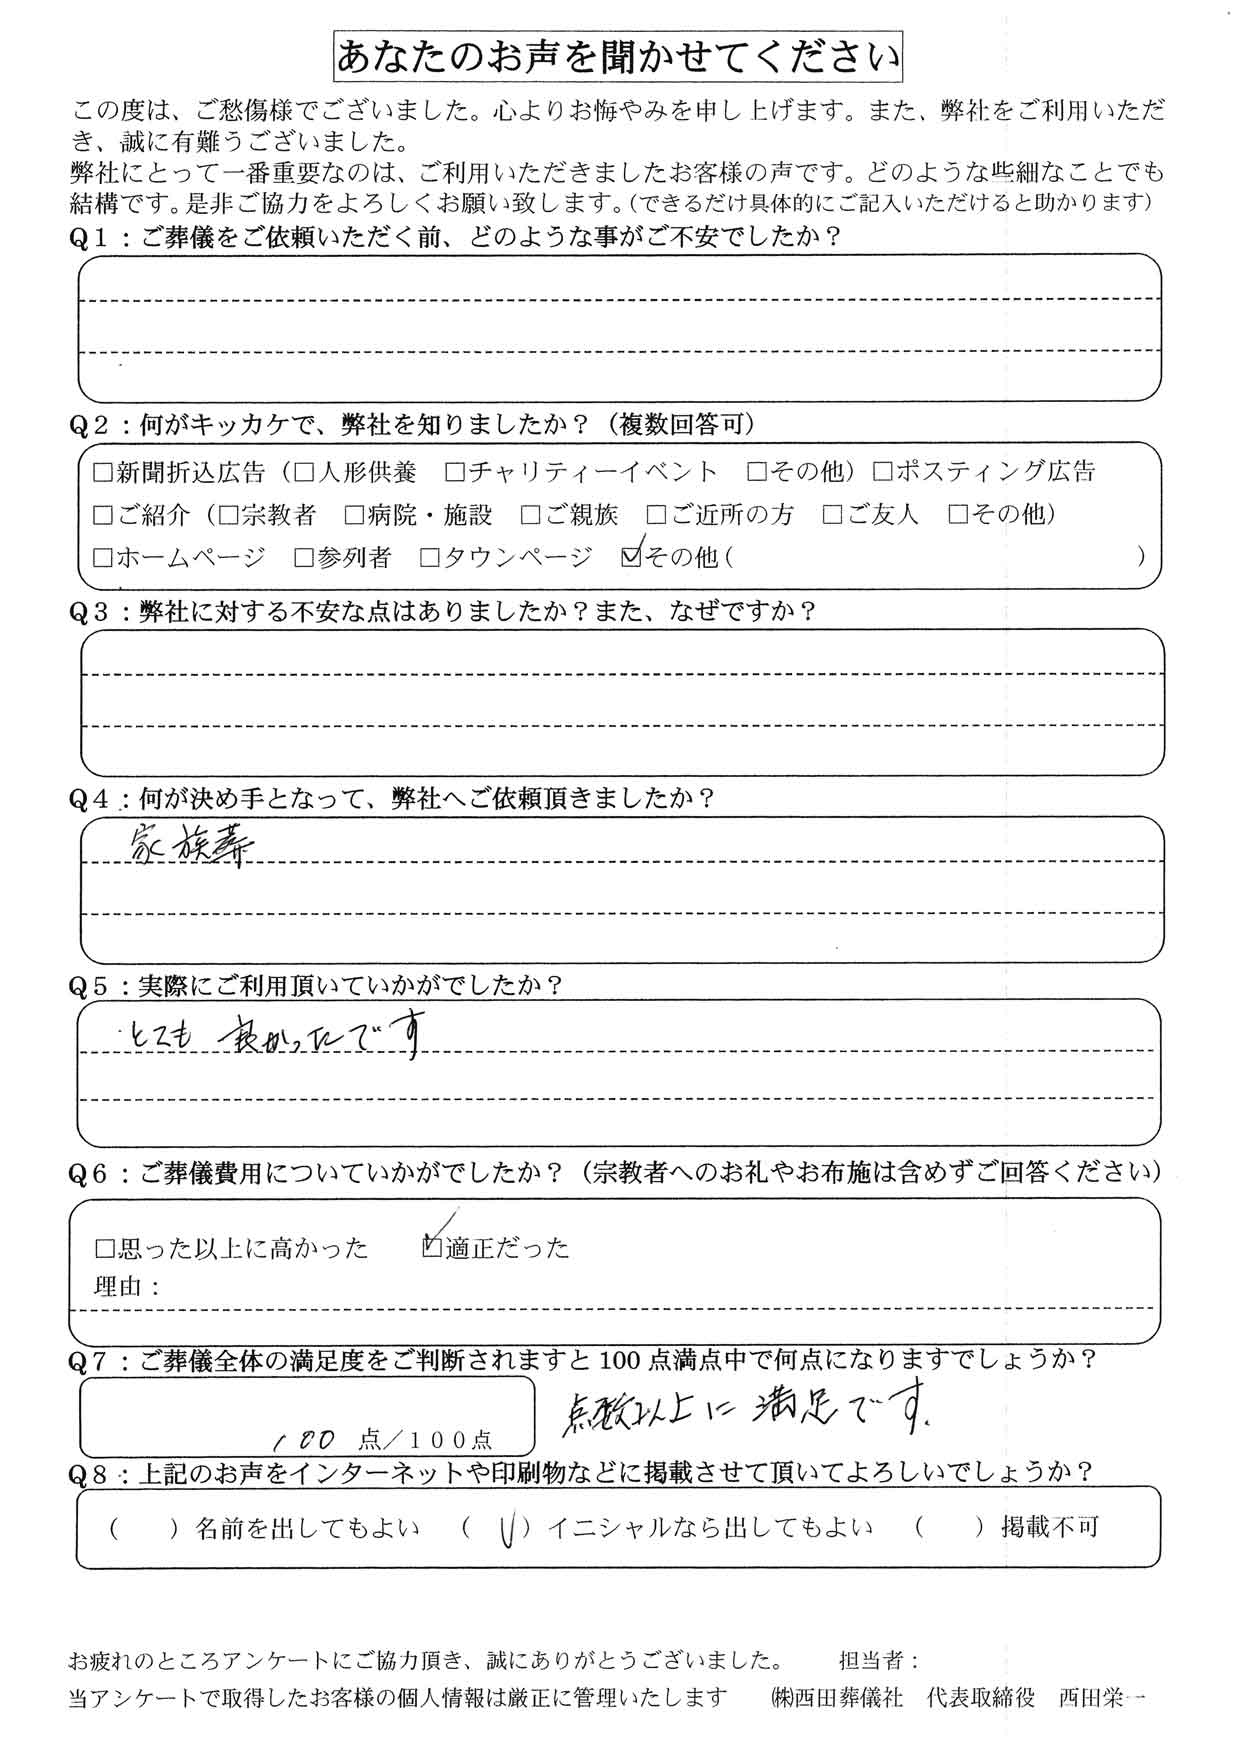 あなたのお声を聞かせてください
この度は、ご愁傷様でございました。心よりお悔やみを申し上げます。また、弊社をご利用いただ
き、誠に有難うございました。
弊社にとって一番重要なのは、ご利用いただきましたお客様の声です。どのような些細なことでも
結構です。是非ご協力をよろしくお願い致します。（できるだけ具体的にご記入いただけると助かります）
Q1：ご葬儀をご依頼いただく前、どのような事がご不安でしたか？
Q2：何がキッカケで、弊社を知りましたか？（複数回答可）
□新聞折込広告（□人形供養　□チャリティーイベント　□その他）□ポスティング広告
□ご紹介（□宗教者　□病院・施設　□ご親族　□ご近所の方　□ご友人　□その他）
□ホームページ　□参列者　□タウンページ　☑その他（　　　　　　　　　　　　　　　　）
Q3：弊社に対する不安な点はありましたか？また、なぜですか？
Q4：何が決め手となって、弊社へご依頼頂きましたか？
家族葬
Q5：実際にご利用頂いていかがでしたか？
とても良かったです
Q6：ご葬儀費用についていかがでしたか？（宗教者へのお礼やお布施は含めずご回答ください）
□思った以上に高かった　☑適正だった
理由：
Q7：ご葬儀全体の満足度をご判断されますと100点満点中で何点になりますでしょうか？
100 点／100点　点数以上に満足です。
Q8：上記のお声をインターネットや印刷物などに掲載させて頂いてよろしいでしょうか？
（　　）名前を出してもよい　（ ✓）イニシャルなら出してもよい　（　　）掲載不可
お疲れのところアンケートにご協力頂き、誠にありがとうございました。　担当者：
当アンケートで取得したお客様の個人情報は厳正に管理いたします　㈱西田葬儀社　代表取締役　西田栄一